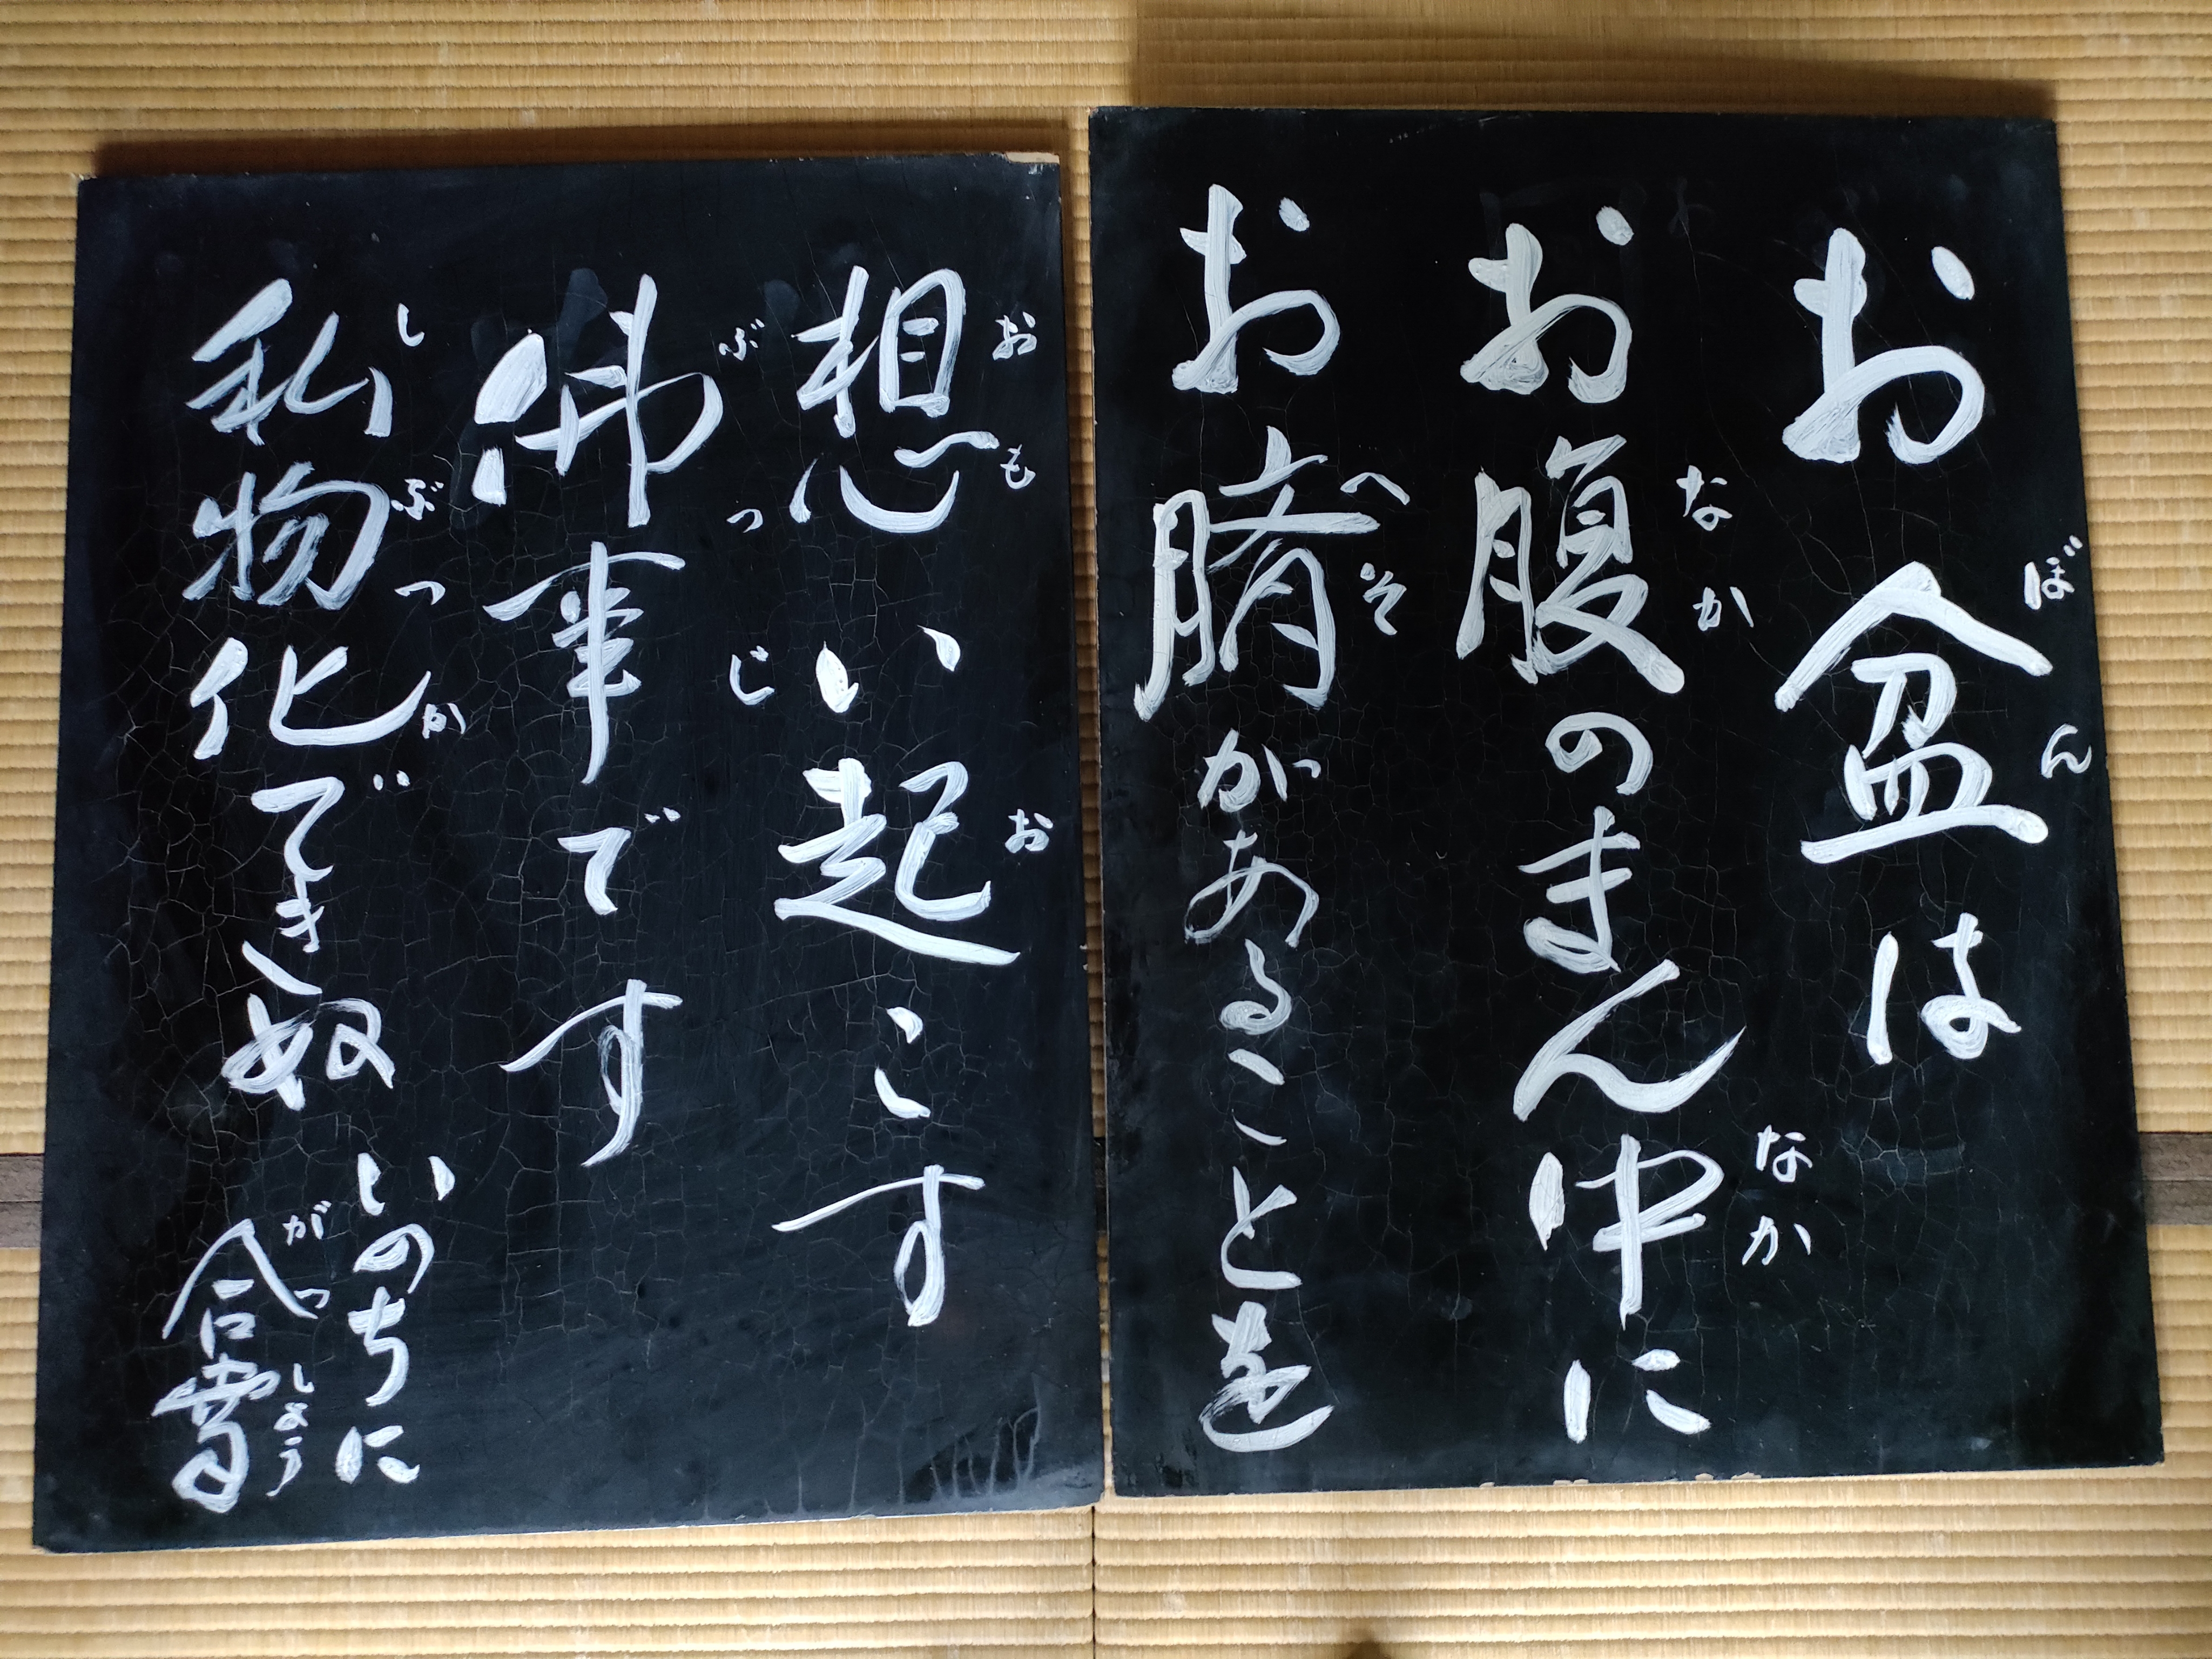 お盆は
お腹のまん中に
お臍があることを
想い起こす
佛事です
私物化できぬ いのちに
合掌
ぼん
なか
なか
へそ
おも
お
ぶつじ
しぶつか
がっしょう